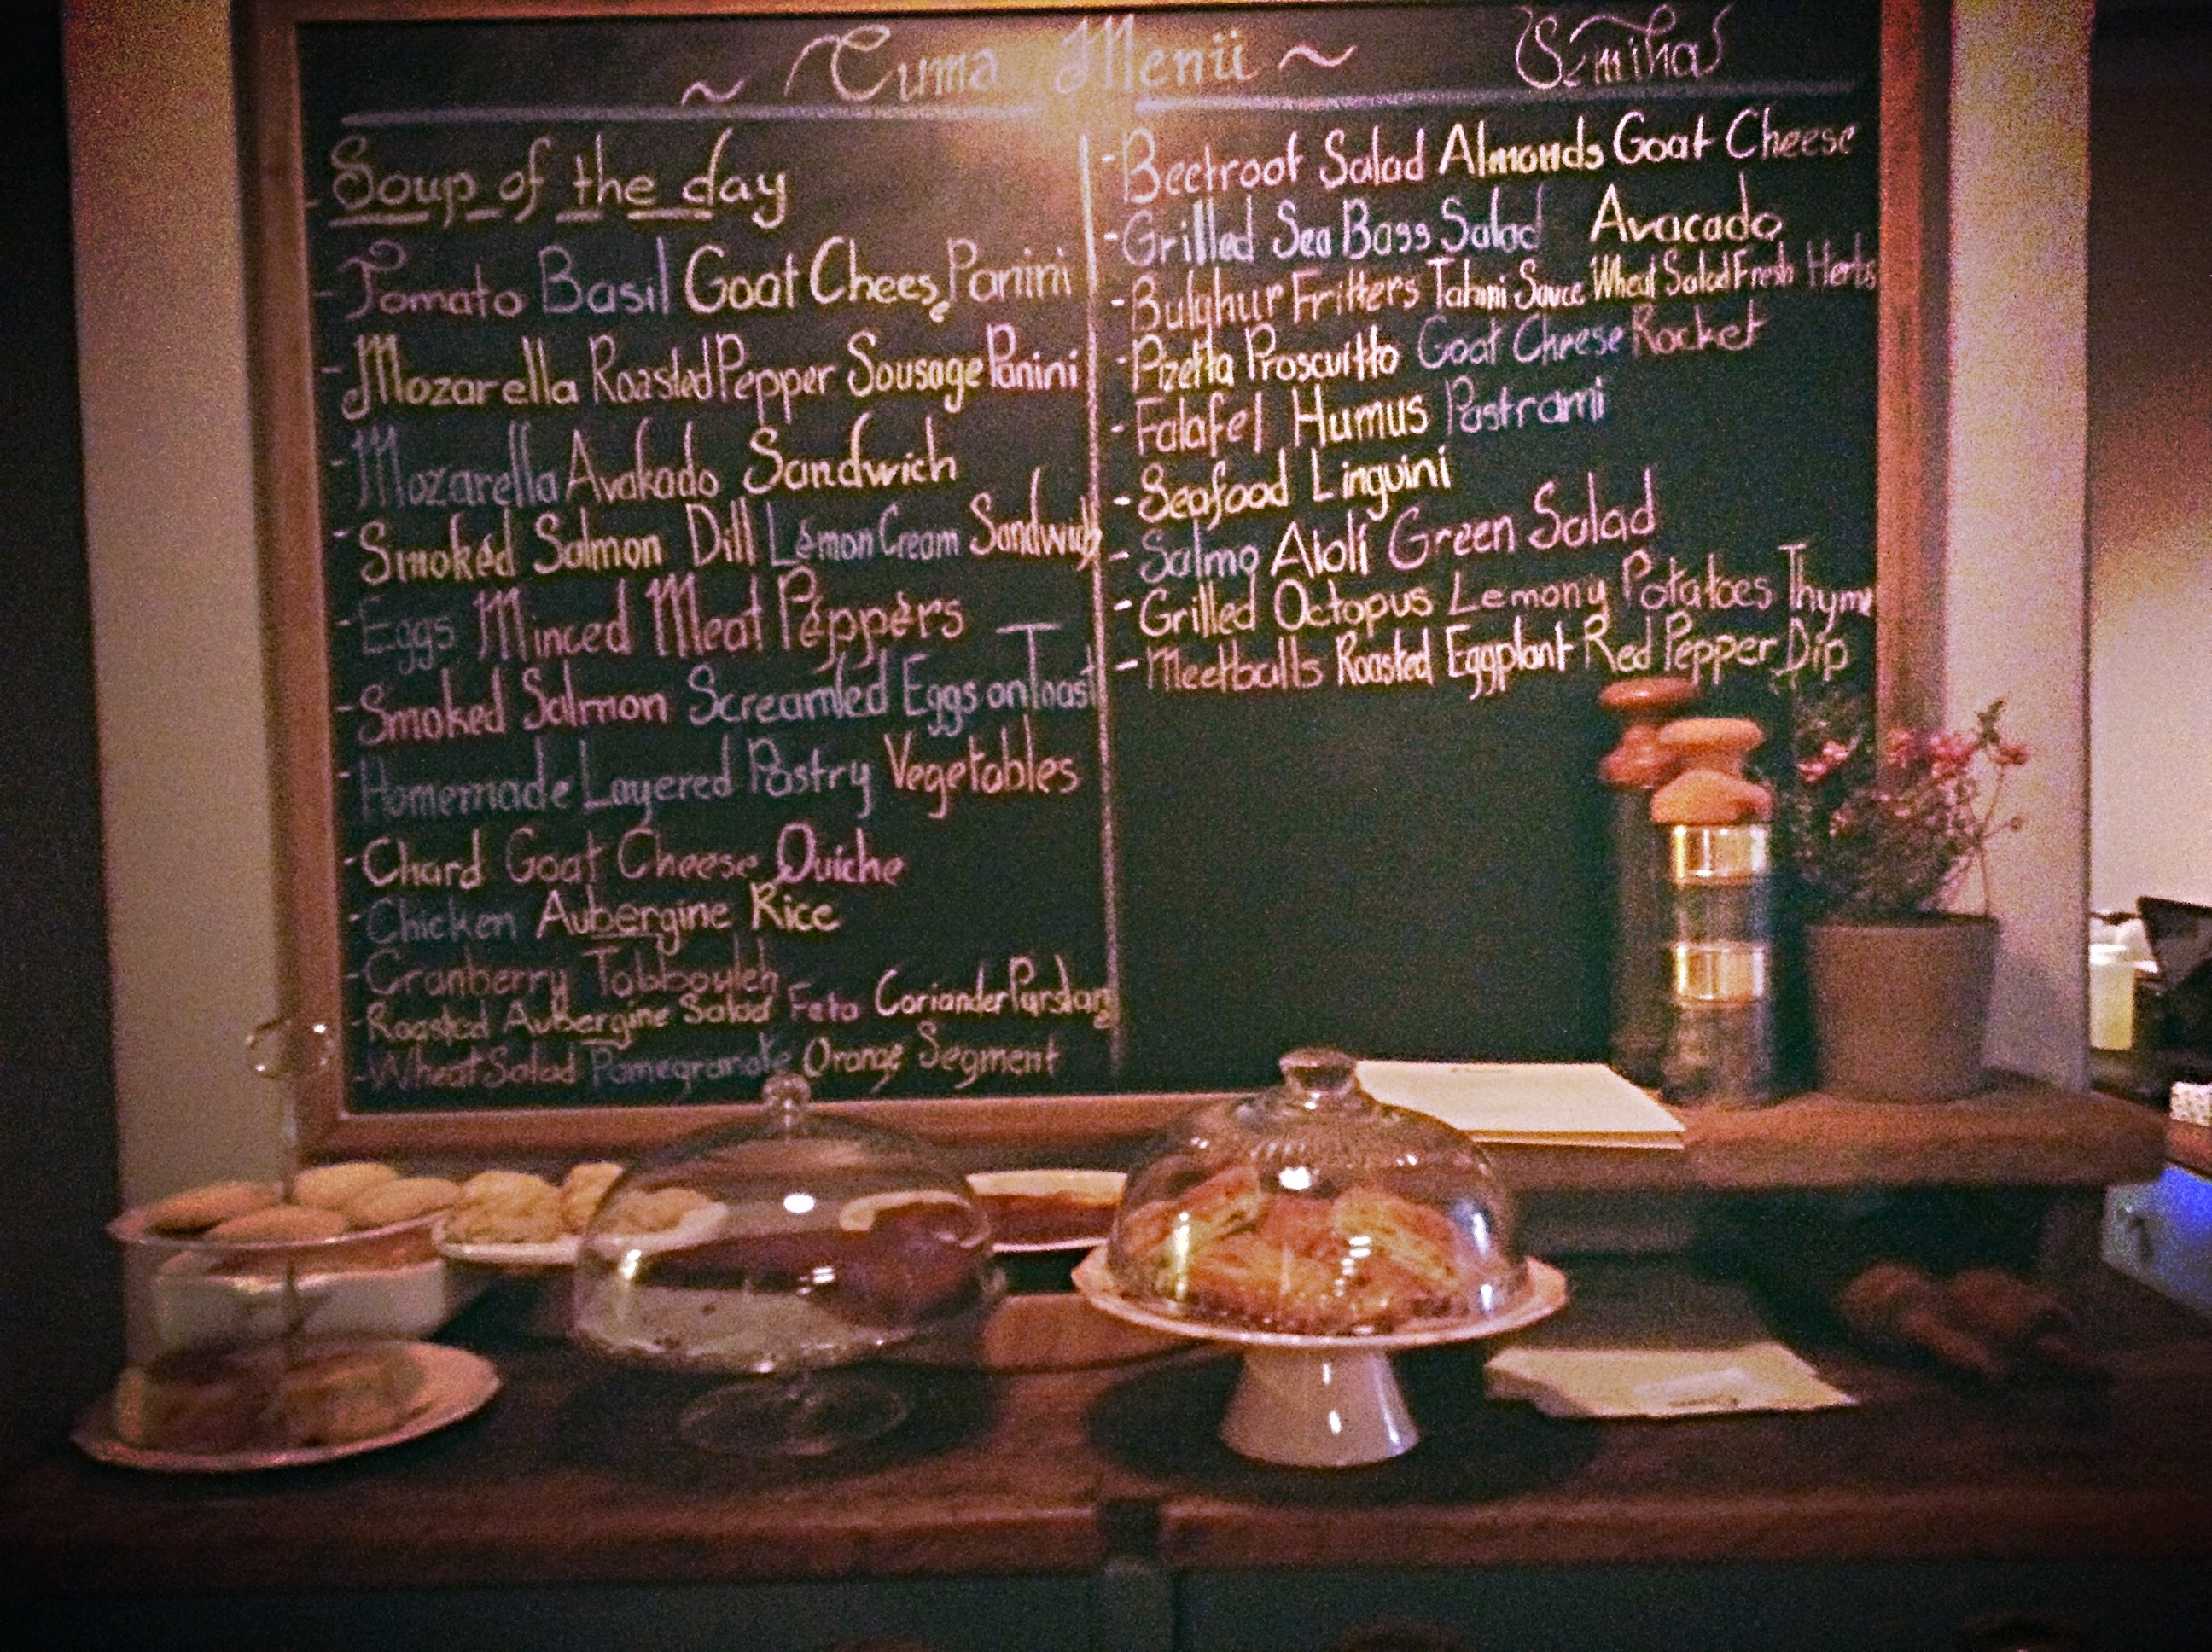 ~ Cuma Menü ~ Semiha
Soup of the day
- Tomato Basil Goat Cheese Panini
- Mozarella Roasted Pepper Sousage Panini
- Mozarella Avakado Sandwich
- Smoked Salmon Dill Lemon Cream Sandwich
- Eggs Minced Meat Peppers
- Smoked Salmon Screamled Eggs on Toast
- Homemade Layered Pastry Vegetables
- Chard Goat Cheese Quiche
- Chicken Aubergine Rice
- Cranberry Tabbouleh
- Roasted Aubergine Salad Feta Coriander Purslany
- Wheat Salad Pomegranate Orange Segment
- Beetroot Salad Almonds Goat Cheese
- Grilled Sea Bass Salad Avacado
- Bulghur Fritters Tahini Sauce Wheat Salad Fresh Herbs
- Pizetta Proscuitto Goat Cheese Rocket
- Falafel Humus Pastrami
- Seafood Linguini
- Salmo Aioli Green Salad
- Grilled Octopus Lemony Potatoes Thyme
- Meetballs Roasted Eggplant Red Pepper Dip